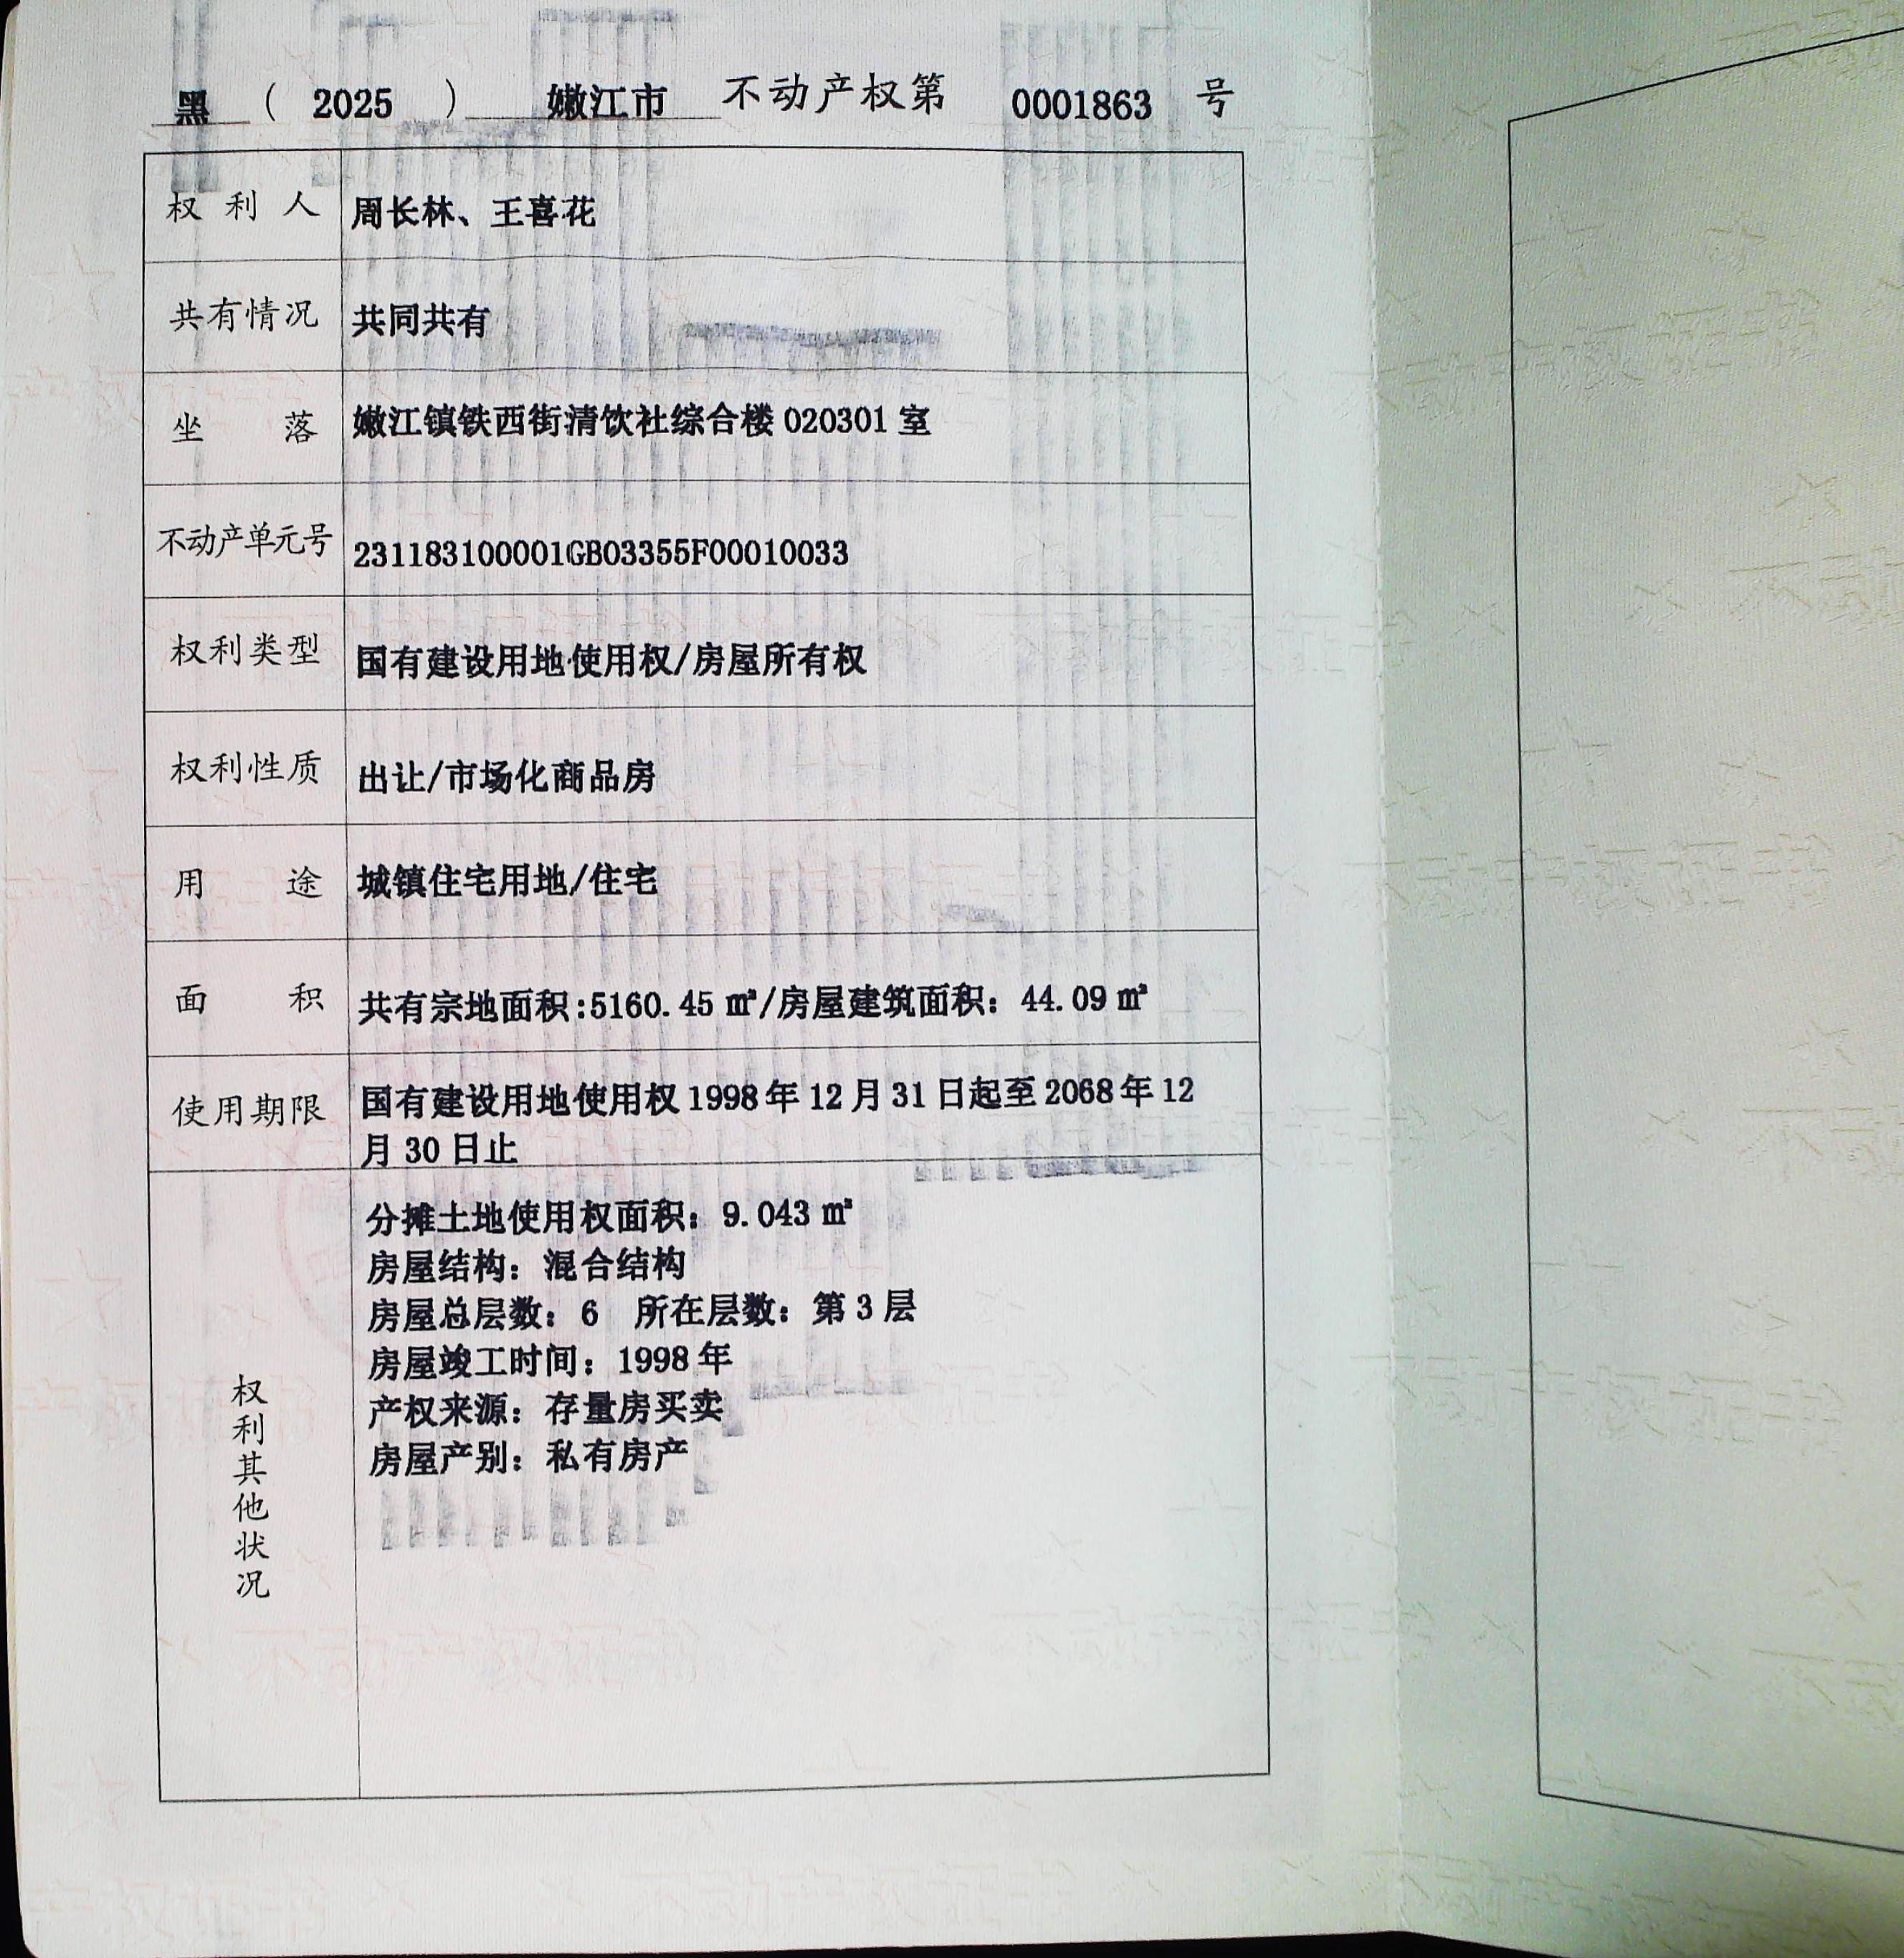 黑（2025）嫩江市不动产权第0001863号
权利人 周长林、王喜花
共有情况 共同共有
坐落 嫩江镇铁西街清饮社综合楼020301室
不动产单元号 231183100001GB03355F00010033
权利类型 国有建设用地使用权/房屋所有权
权利性质 出让/市场化商品房
用途 城镇住宅用地/住宅
面积 共有宗地面积:5160.45㎡/房屋建筑面积：44.09㎡
使用期限 国有建设用地使用权1998年12月31日起至2068年12
月30日止
权利其他状况
分摊土地使用权面积：9.043㎡
房屋结构：混合结构
房屋总层数：6 所在层数：第3层
房屋竣工时间：1998年
产权来源：存量房买卖
房屋产别：私有房产